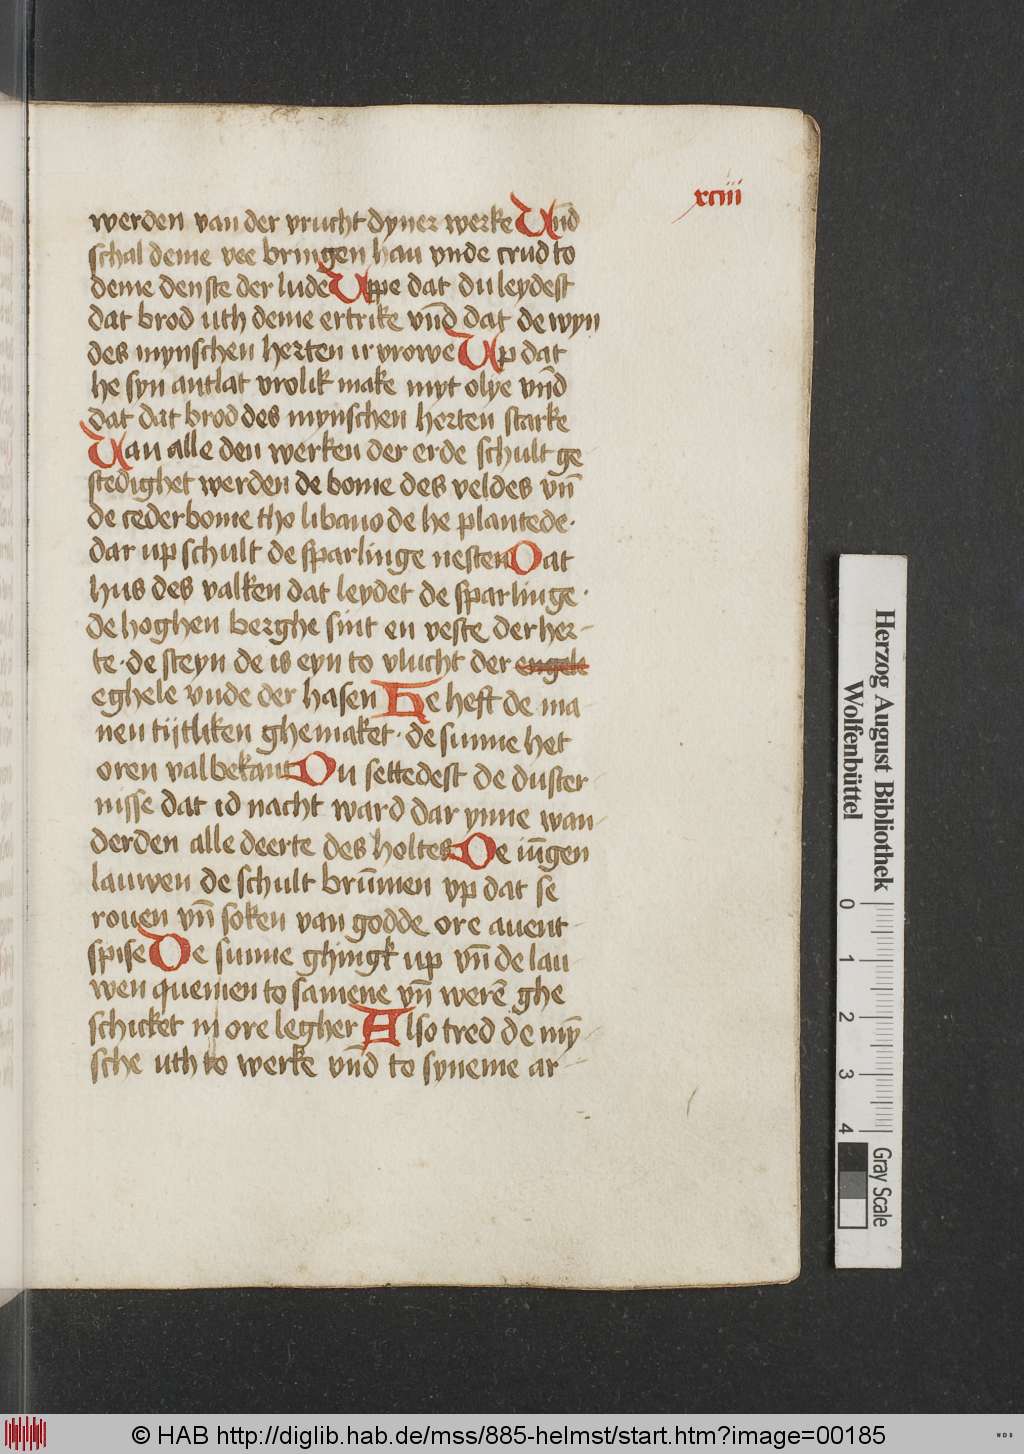 xciiii
werden van der vrucht dyner werke Vn̄d
schal deme vee bringen hau vnde crud to
deme denste der lude Vppe dat du leydest
dat brod uth deme ertrike vn̄d dat de wyn
des mynschen herten irvrowe Vp dat
he syn antlat vrolik make myt olye vn̄d
dat dat brod des mynschen herten starke
Van alle den werken der erde schult ge
stedighet werden de bome des veldes vn̄
de cederbome tho libano de he plantede·
dar up schult de sparlinge nesten Dat
hus des valken dat leydet de sparlinge·
de hoghen berghe sint en veste der her-
te· de steyn de is eyn to vlucht der engele
eghele vnde der hasen He heft de ma-
nen tijtliken ghemaket· de sunne het
oren val bekant Du settedest de duster-
nisse dat id nacht ward dar ynne wan-
derden alle deerte des holtes De iūgen
lauwen de schult brūmen vp dat se
roven vn̄ soken van godde ore avent-
spise De sunne ghingk up vn̄ de lau-
wen quemen to samene vn̄ werē ghe
schicket in ore legher Also tred de mȳ-
sche uth to werke vn̄d to syneme ar-
Herzog August Bibliothek
Wolfenbüttel
0 1 2 3 4
Gray Scale
© HAB http://diglib.hab.de/mss/885-helmst/start.htm?image=00185